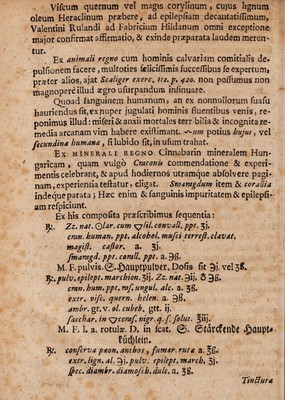 Viscum quernum vel magis corylinum, cujus lignum
oleum Heraclinum præbere, ad epilepsiam decantatissimum,
Valentini Rulandi ad Fabricium Hildanum omni exceptione
major confirmat affirmatio, & exinde præparata laudem meren-
tur.
Ex animali regno cum hominis calvariam comitialis de-
pulsionem facere, multoties felicissimis successibus se expertum,
præter alios, ajat Scaliger exerc, 112. p. 420. non possumus non
magnopere illud ægro usurpandum insinuare.
Quoad sanguinem humanum, an ex nonnullorum suasu
hauriendus sit, ex nuper jugulati hominis fluentibus venis, re-
ponimus illud: miseri & anxii mortales terribilia & incognita re-
media arcanam vim habere existimant. potius hujus, vel
secundina humana, si lubido sit, in usum trahat.
Ex MINERALI REGNO Cinnabarin mineralem Hun-
garicam, quam vulgò Cratonis commendatione & experi-
mentis celebrant, & apud hodiernos utramque absolvere pagi-
nam, experientia testatur, eligat. Smaragdum item & corallia
inde que parata; Hæc enim & sanguinis impuritatem & epilepsi-
am respiciunt.
Ex his composita præscribimus sequentia:
℞. Zz. nat. ☉lar. cum lil. convall. ppt. ʒj.
cran. human. ppt. alcohol. musci terrest. clavat.
magist. castor. a. ʒj.
smaragd. ppt. corall. ppt. a. ℈ß.
M. F. pulvis. S. Hauptpulver. Dosis sit ℈j. vel ʒß.
℞. pulv. epilept. marchion. ʒij. Zz. nat. ℈ij.
cran. hum. ppt. ras. ungul. alc. a. ʒß.
extr. visc. quern. helen. a. ℈ß.
ambr. gr. v. ol. cubeb. gtt. ij.
sacchar. in ceras. nigr. q. s. solut. ʒiij.
M. F. l. a. rotulæ. D. in scat. S. Stärckende Haupt-
küchlein.
℞. conserva pæon. anthos, fumar. rutæ a. ʒß.
extr. lign. al. ℈j. pulv. epilept. march. ʒj.
spec. diambr. diamosch. dulc. a. ʒß.
Tinctura